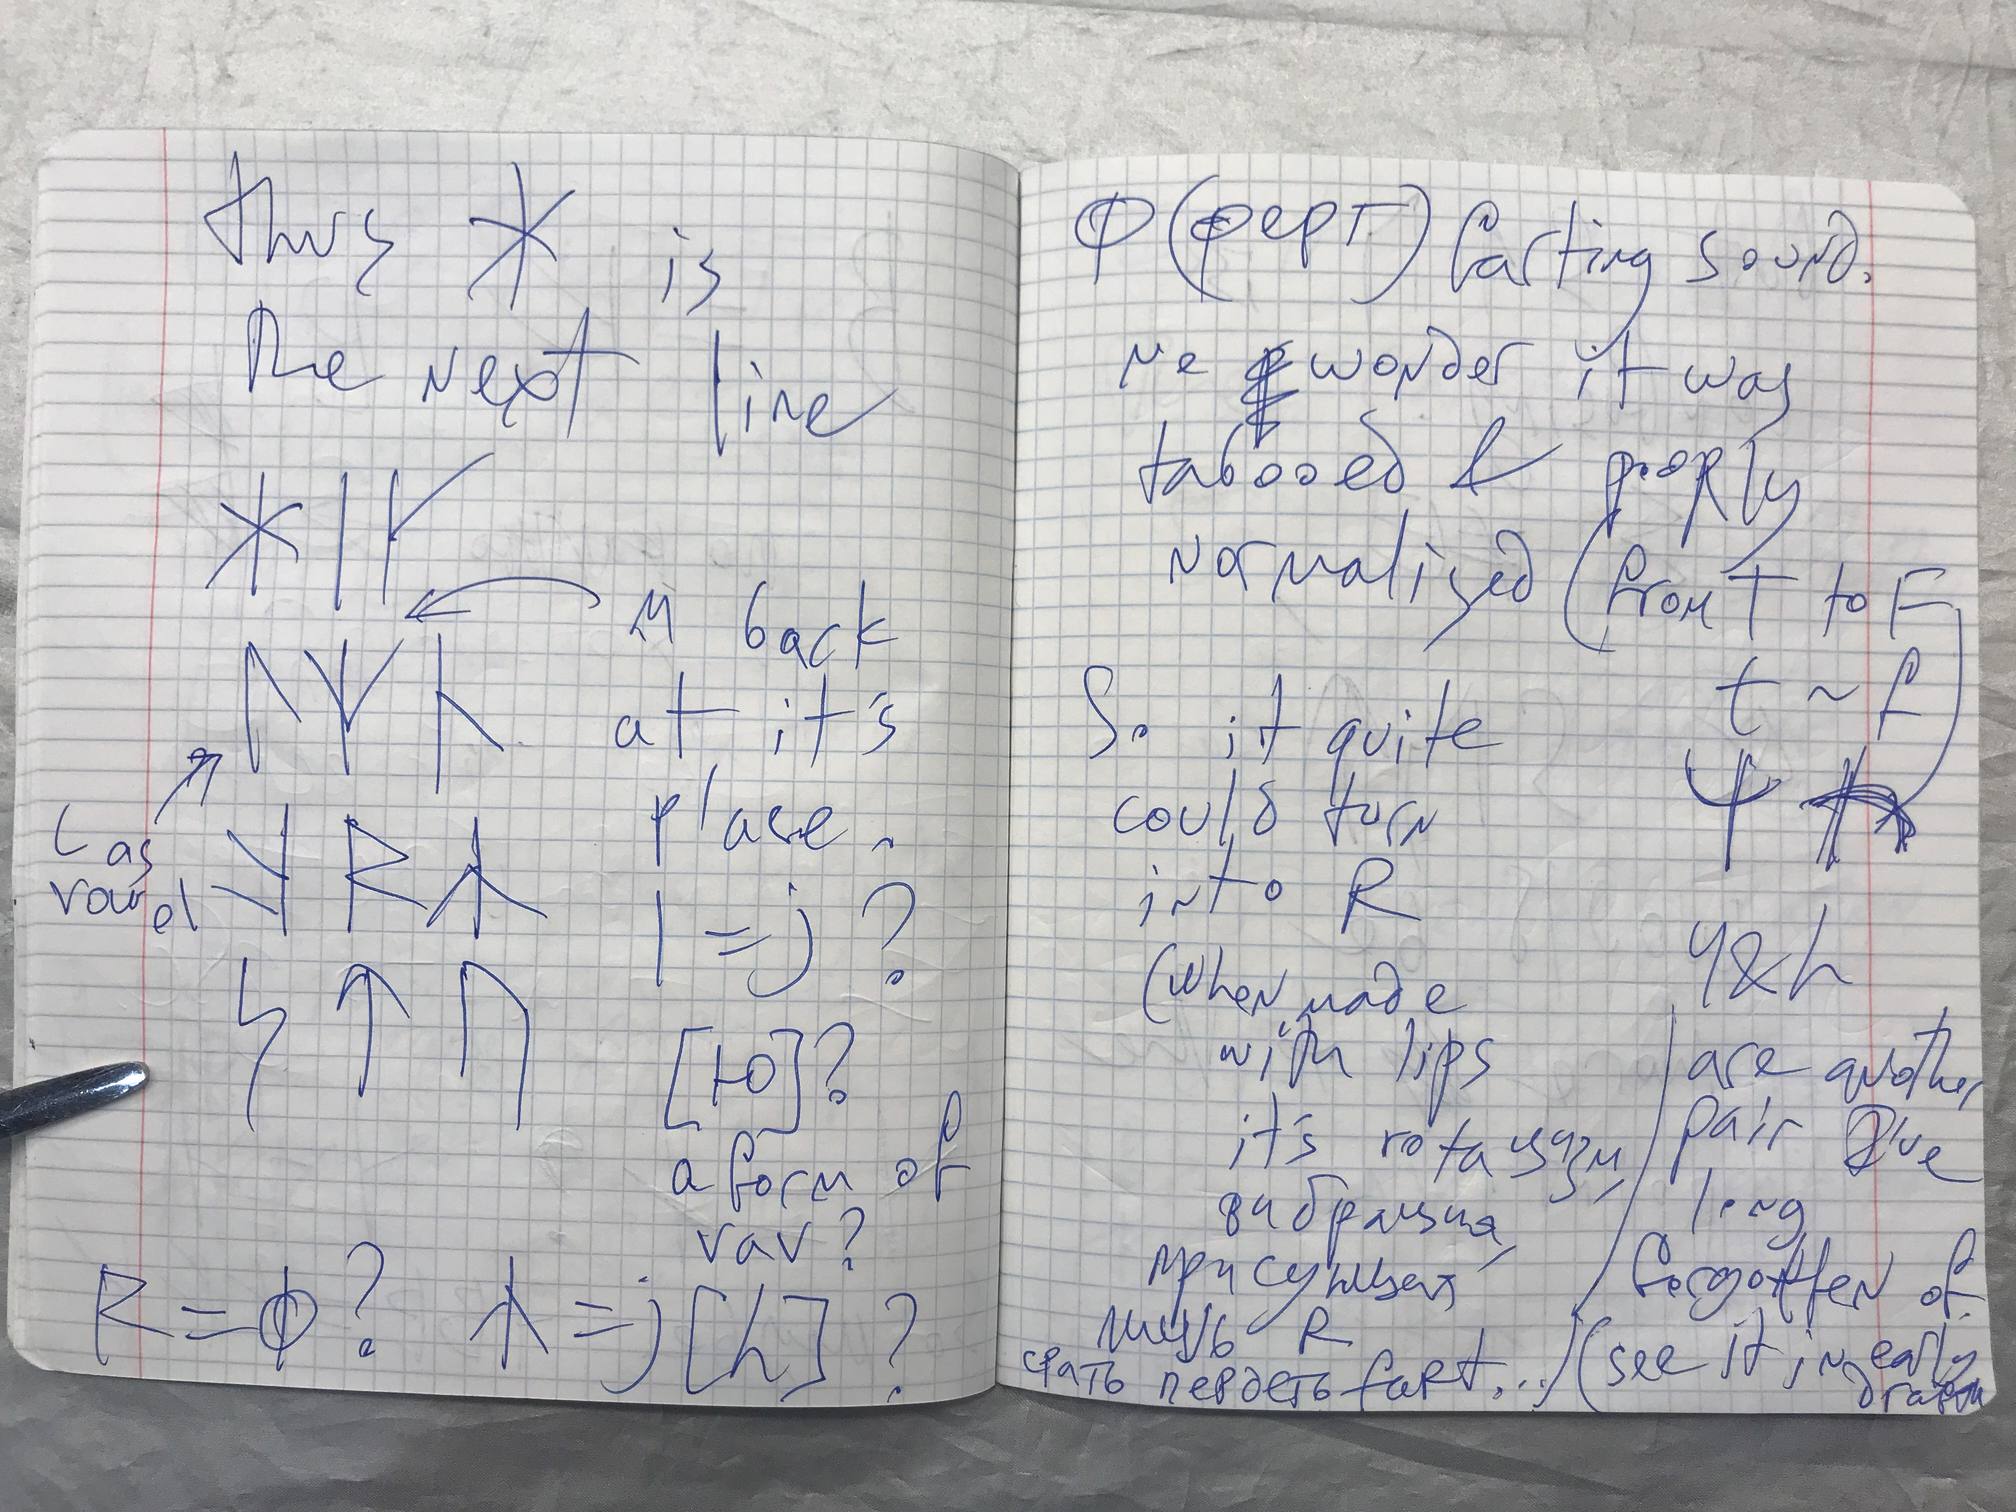 thus ᚼ is
the next line
ᚼ ᛁ ᚴ
ᛚ ᛉ ᚿ
M back
at it's
place.
L as
vowel
ᚱ ᛦ
ᛋ ᛏ ᚢ
ᛁ = j ?
[Ю]?
a form of
vav?
ᚱ = ф? ᛦ = j [h] ?
Ф (ферт) farting sound.
no wonder it was
tabooed &
normalized (from T to F
t ~ f
Ψ
So it quite
could turn
into R
(when made
with lips
it's
вибрация,
присущая
лишь R
срать пердеть faRt...
Ч & h
are another
pair I've
long
forgotten of.
(see it in early